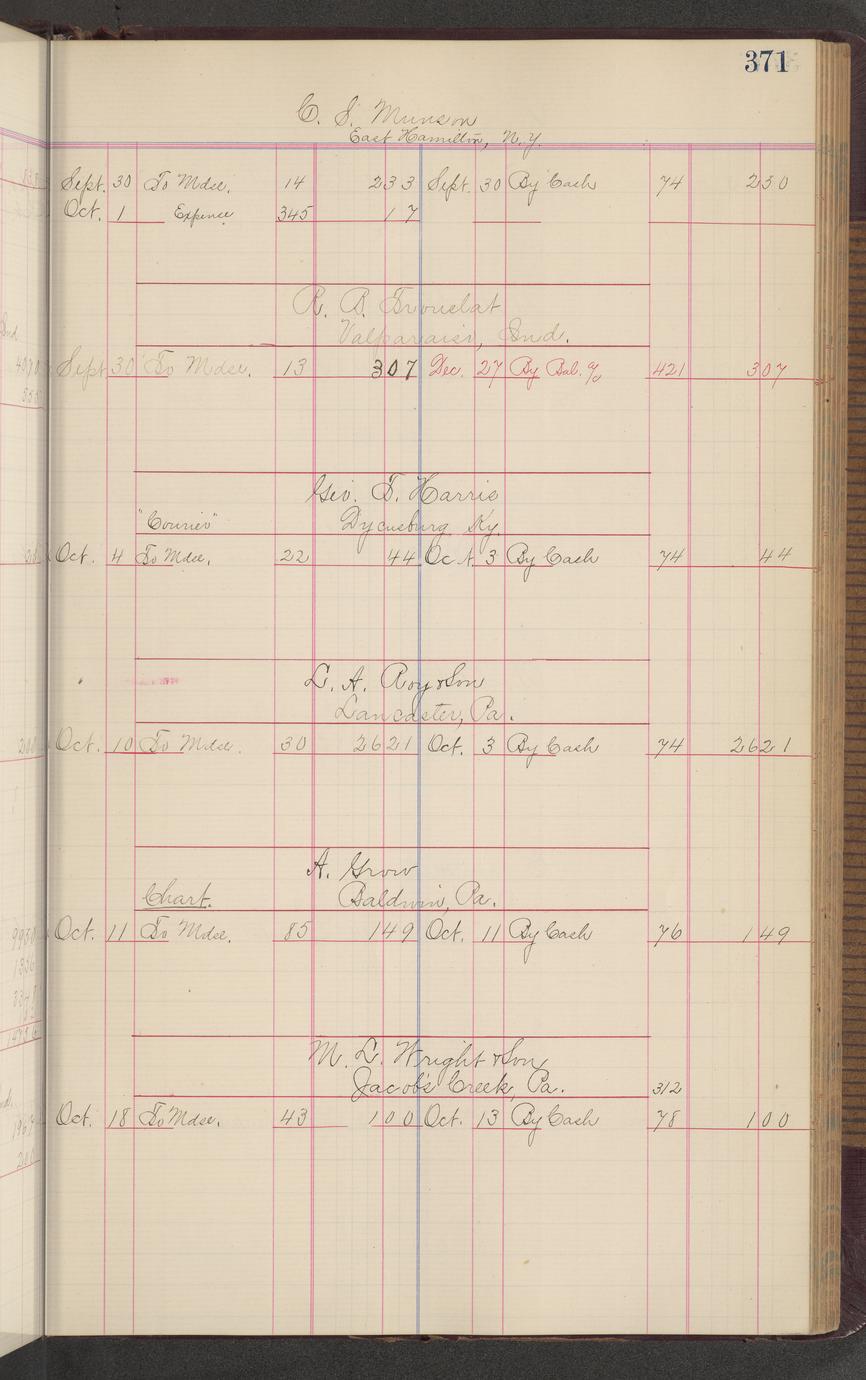 371
C. S. Munson
East Hamilton, N.Y.
Sept. 30 To Mdse. 14 233 Sept. 30 By Cash 74 250
Oct. 1 Expense 345 17
R. B. Trouslat
Valparaiso, Ind.
Sept 30 To Mdse. 13 307 Dec. 27 By Bal. a/c 421 307
Geo. T. Harris
"Courier" Dycusburg Ky.
Oct. 4 To Mdse. 22 44 Oct. 3 By Cash 74 44
L. A. Roy & Son
Lancaster, Pa.
Oct. 10 To Mdse. 30 2621 Oct. 3 By Cash 74 2621
A. Grow
Chart. Baldwin, Pa.
Oct. 11 To Mdse. 85 149 Oct. 11 By Cash 76 149
M. L. Wright & Son
Jacob's Creek, Pa. 312
Oct. 18 To Mdse. 43 100 Oct. 13 By Cash 78 100